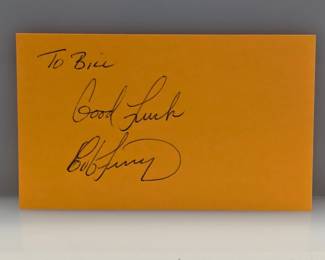 To Bill
Good Luck
Bob